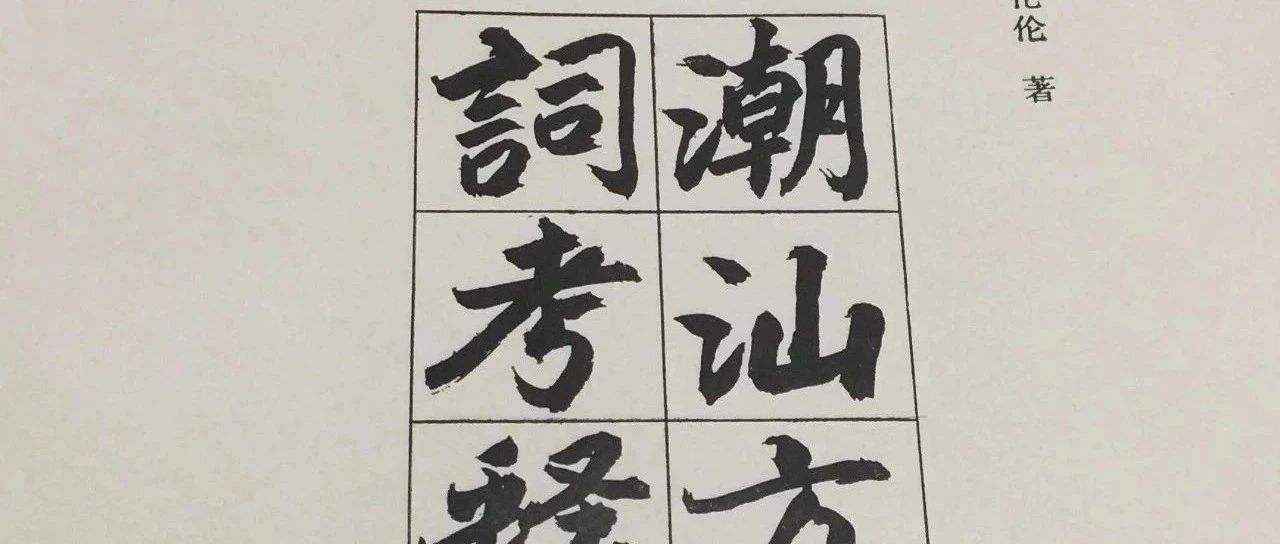 潮汕方
詞考释
伦 著